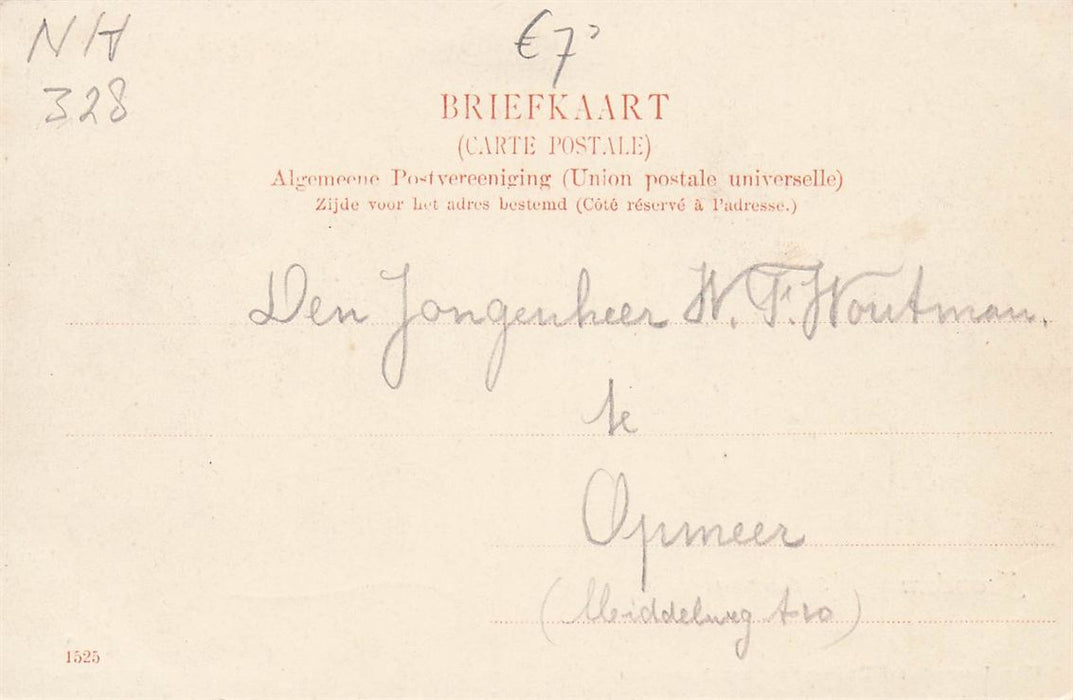 NH
328
€7,
BRIEFKAART
(CARTE POSTALE)
Algemeene Postvereeniging (Union postale universelle)
Zijde voor het adres bestemd (Côté réservé à l'adresse.)
Den Jongenheer W. F. Woutman.
te
Opmeer
(Middelburg
1525